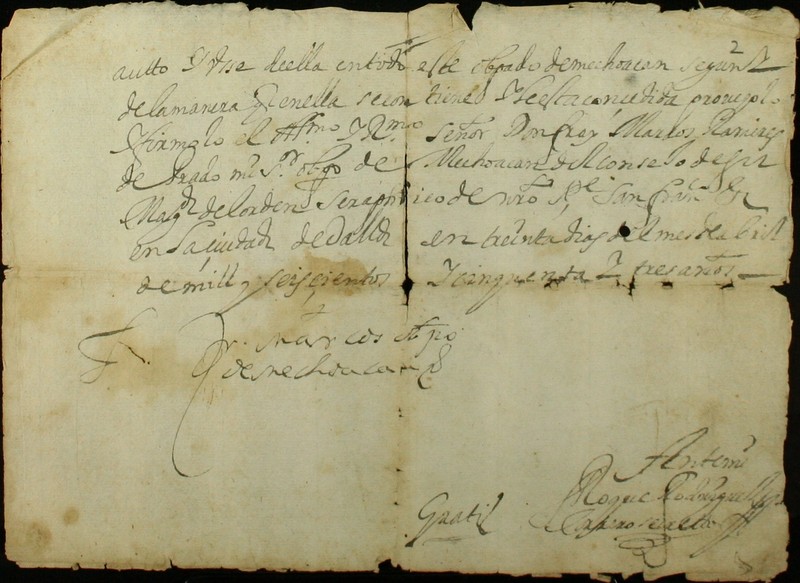 autto Y Vse della en todo este obpado de mechoacan segun
de la manera q en ella se contiene Y le esta concedida proueyolo
Y firmolo el Illmo Y Rmo Señor Don fray Marcos Ramires
de Prado mi Sr obpo de Mechoacan del Consejo de su
Magd del orden Seraphico de nro Pe San franco
en la ciudad de Valld en treinta dias del mes de abril
de mill y seiscientos Y cinquenta Y tres años
Fr. Marcos obpo
de mechoacan
Ante mi
Roque Rodrigues
Gratis